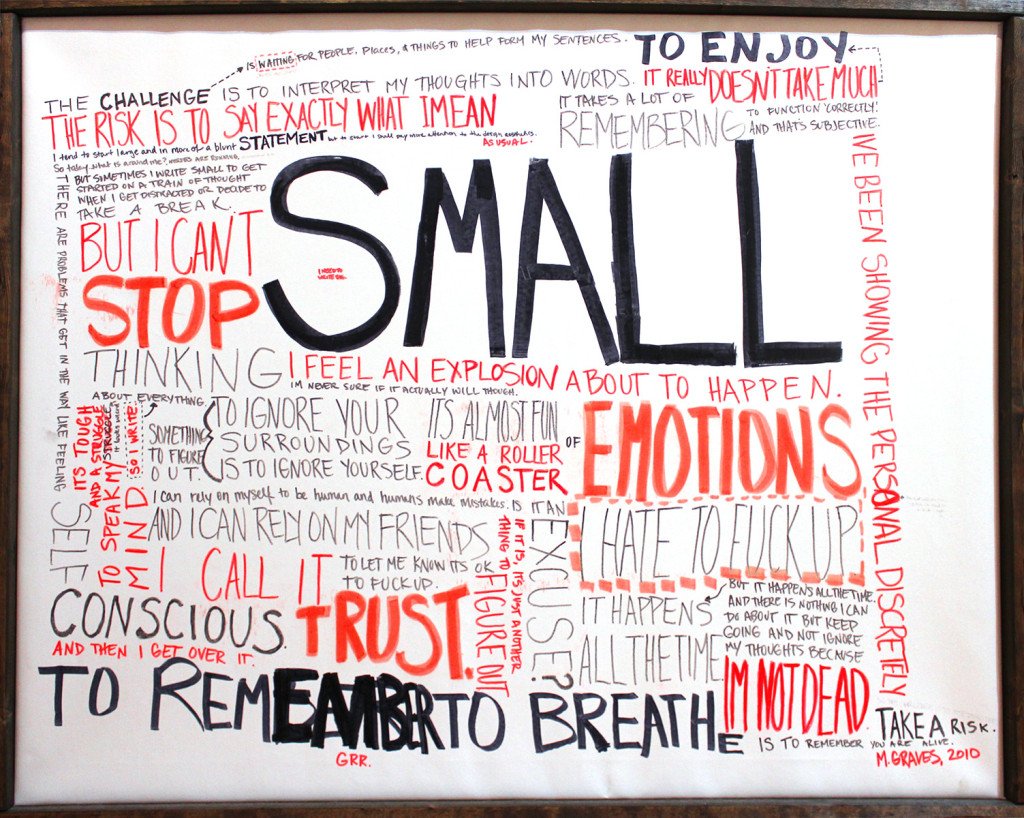 IS WAITING FOR PEOPLE, PLACES, & THINGS TO HELP FORM MY SENTENCES.
TO ENJOY
THE CHALLENGE IS TO INTERPRET MY THOUGHTS INTO WORDS.
IT REALLY DOESN'T TAKE MUCH
THE RISK IS TO SAY EXACTLY WHAT I MEAN
AS USUAL.
IT TAKES A LOT OF
REMEMBERING
TO FUNCTION "CORRECTLY."
AND THAT'S SUBJECTIVE.
I tend to start large and in more of a blunt STATEMENT but to start I shall pay more attention to the design
So today, what is around me?
BUT SOMETIMES I WRITE SMALL TO GET
STARTED ON A TRAIN OF THOUGHT
WHEN I GET DISTRACTED OR DECIDE TO
TAKE A BREAK.
SMALL
I NEED TO
BUT I CAN'T
STOP
THINKING
ABOUT EVERYTHING.
I FEEL AN EXPLOSION ABOUT TO HAPPEN.
IM NEVER SURE IF IT ACTUALLY WILL THOUGH.
THERE ARE PROBLEMS THAT GET IN THE WAY LIKE FEELING
SELF
CONSCIOUS.
AND THEN I GET OVER IT.
IT'S TOUGH
AND A STRUGGLE
TO SPEAK MY
MIND
SO I WRITE.
SOMETHING
TO FIGURE
OUT.
TO IGNORE YOUR
SURROUNDINGS
IS TO IGNORE YOURSELF.
ITS ALMOST FUN
LIKE A ROLLER
COASTER
OF
EMOTIONS
I can rely on myself to be human and humans make mistakes.
IS IT AN
EXCUSE?
IF IT IS, IT'S JUST ANOTHER
THING TO FIGURE OUT
AND I CAN RELY ON MY FRIENDS
TO LET ME KNOW ITS OK
TO FUCK UP.
I CALL IT
TRUST.
I HATE TO FUCK UP
IT HAPPENS
ALL THE TIME.
BUT IT HAPPENS ALL THE TIME.
AND THERE IS NOTHING I CAN
DO ABOUT IT BUT KEEP
GOING AND NOT IGNORE
MY THOUGHTS BECAUSE
IM NOT DEAD.
IVE BEEN SHOWING THE PERSONAL DISCRETELY
TO REMEMBER TO BREATHE
GRR.
IS TO REMEMBER YOU ARE ALIVE.
TAKE A RISK.
M. GRAVES, 2010